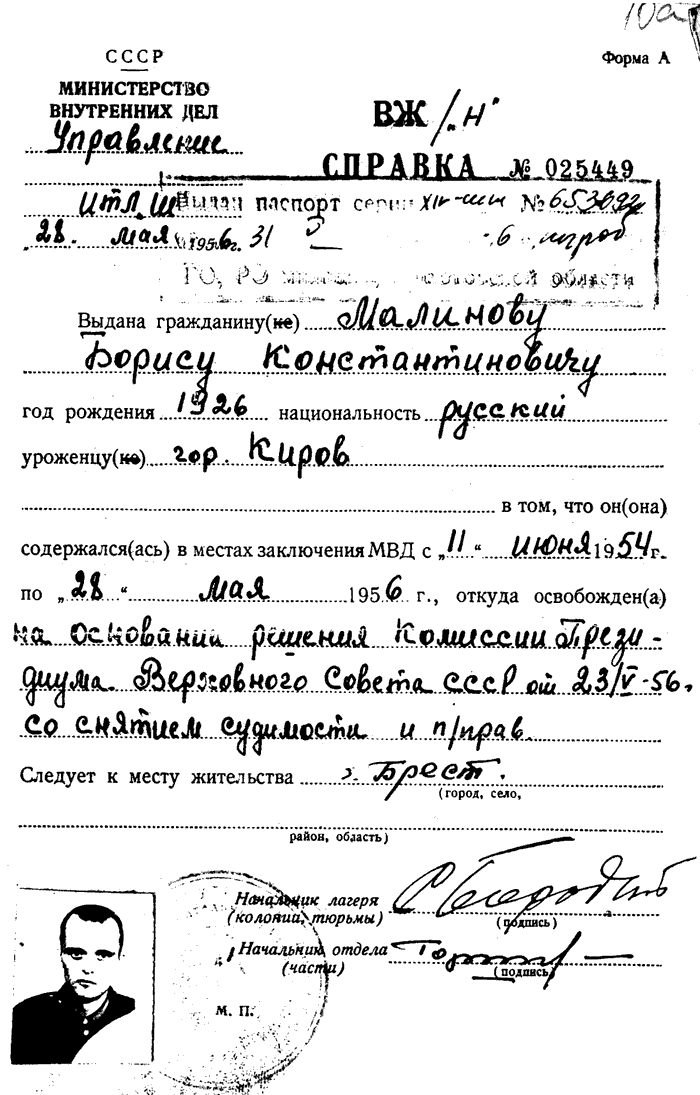 10а
СССР
Форма А
МИНИСТЕРСТВО
ВНУТРЕННИХ ДЕЛ
Управление
ВЖ/„Н"
СПРАВКА № 025449
ИТЛ.Ш
Выдан паспорт серии XIV-ши №
„28. мая 1956г.
31
6
ГО, РО области
Выдана гражданину(ке) Малинову
Борису Константиновичу
год рождения 1926 национальность русский
уроженцу(ке) гор. Киров
в том, что он(она)
содержался(ась) в местах заключения МВД с „11" июня 1954 г.
по „28" мая 1956 г., откуда освобожден(а)
на основании решения Комиссии Прези-
диума Верховного Совета СССР от 23/V-56.
со снятием судимости и п/прав.
Следует к месту жительства г. Брест.
(город, село,
район, область)
Начальник лагеря
(колонии, тюрьмы)
(подпись)
Начальник отдела
(части)
(подпись)
М. П.